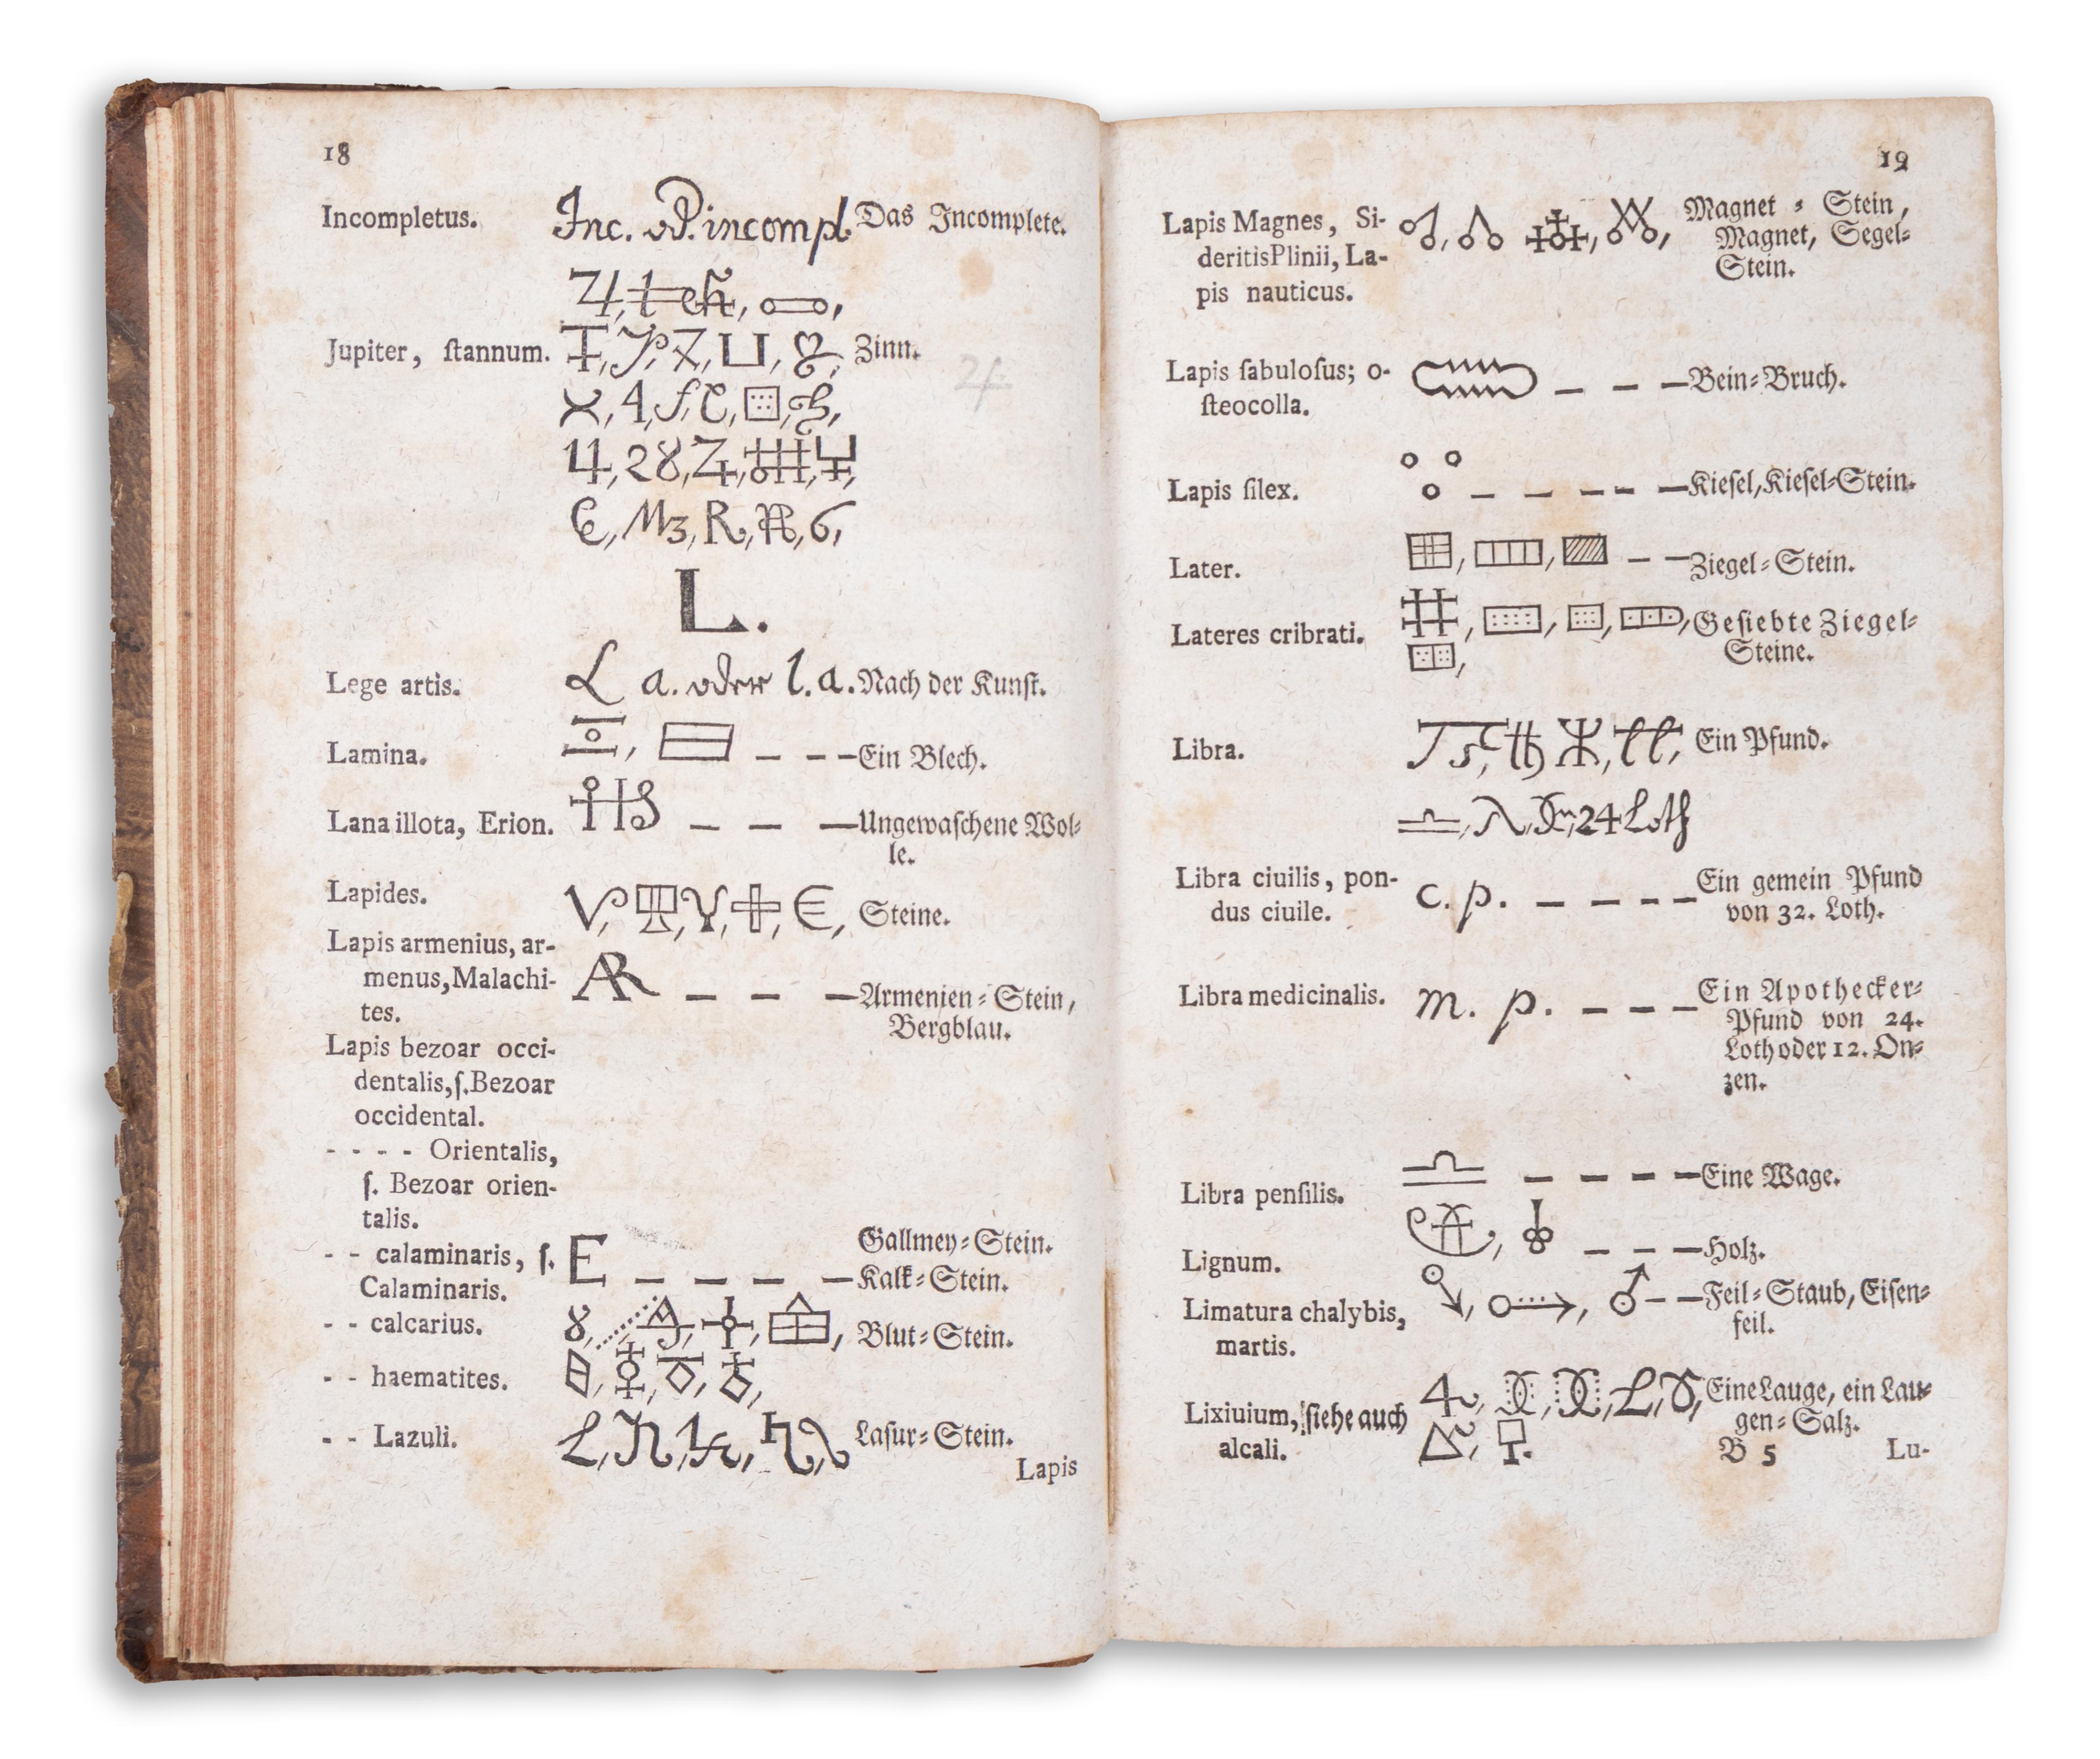 18
Incompletus. Inc. od. incompl. Das Incomplete.
Jupiter, ſtannum. Zinn.
4, 28,
M3, R, 6,
L.
Lege artis. L a. oder l. a. Nach der Kunſt.
Lamina. – – – Ein Blech.
Lana illota, Erion. – – – Ungewaſchene Wol⸗
le.
Lapides. Steine.
Lapis armenius, ar-
menus, Malachi-
tes.
AR – – – Armenien⸗Stein,
Bergblau.
Lapis bezoar occi-
dentalis, ſ. Bezoar
occidental.
- - - - Orientalis,
ſ. Bezoar orien-
talis.
- - calaminaris, ſ. E – – – – Gallmey⸗Stein.
Calaminaris. Kalk⸗Stein.
- - calcarius. Blut⸗Stein.
- - haematites.
- - Lazuli. Laſur⸗Stein.
Lapis
19
Lapis Magnes, Si- Magnet⸗Stein,
deritis Plinii, La- Magnet, Segel⸗
pis nauticus. Stein.
Lapis ſabuloſus; o- – – – Bein⸗Bruch.
ſteocolla.
Lapis ſilex. – – – – – Kieſel, Kieſel⸗Stein.
Later. – – Ziegel⸗Stein.
Lateres cribrati. Geſiebte Ziegel⸗
Steine.
Libra. Ein Pfund.
24 Loth
Libra ciuilis, pon- c. p. – – – – Ein gemein Pfund
dus ciuile. von 32. Loth.
Libra medicinalis. m. p. – – – Ein Apothecker⸗
Pfund von 24.
Loth oder 12. On⸗
zen.
Libra penſilis. – – – – Eine Wage.
Lignum. – – – Holz.
Limatura chalybis, – – Feil⸗Staub, Eiſen⸗
martis. feil.
Lixiuium, ſiehe auch Eine Lauge, ein Lau⸗
alcali. gen⸗Salz.
B 5 Lu-